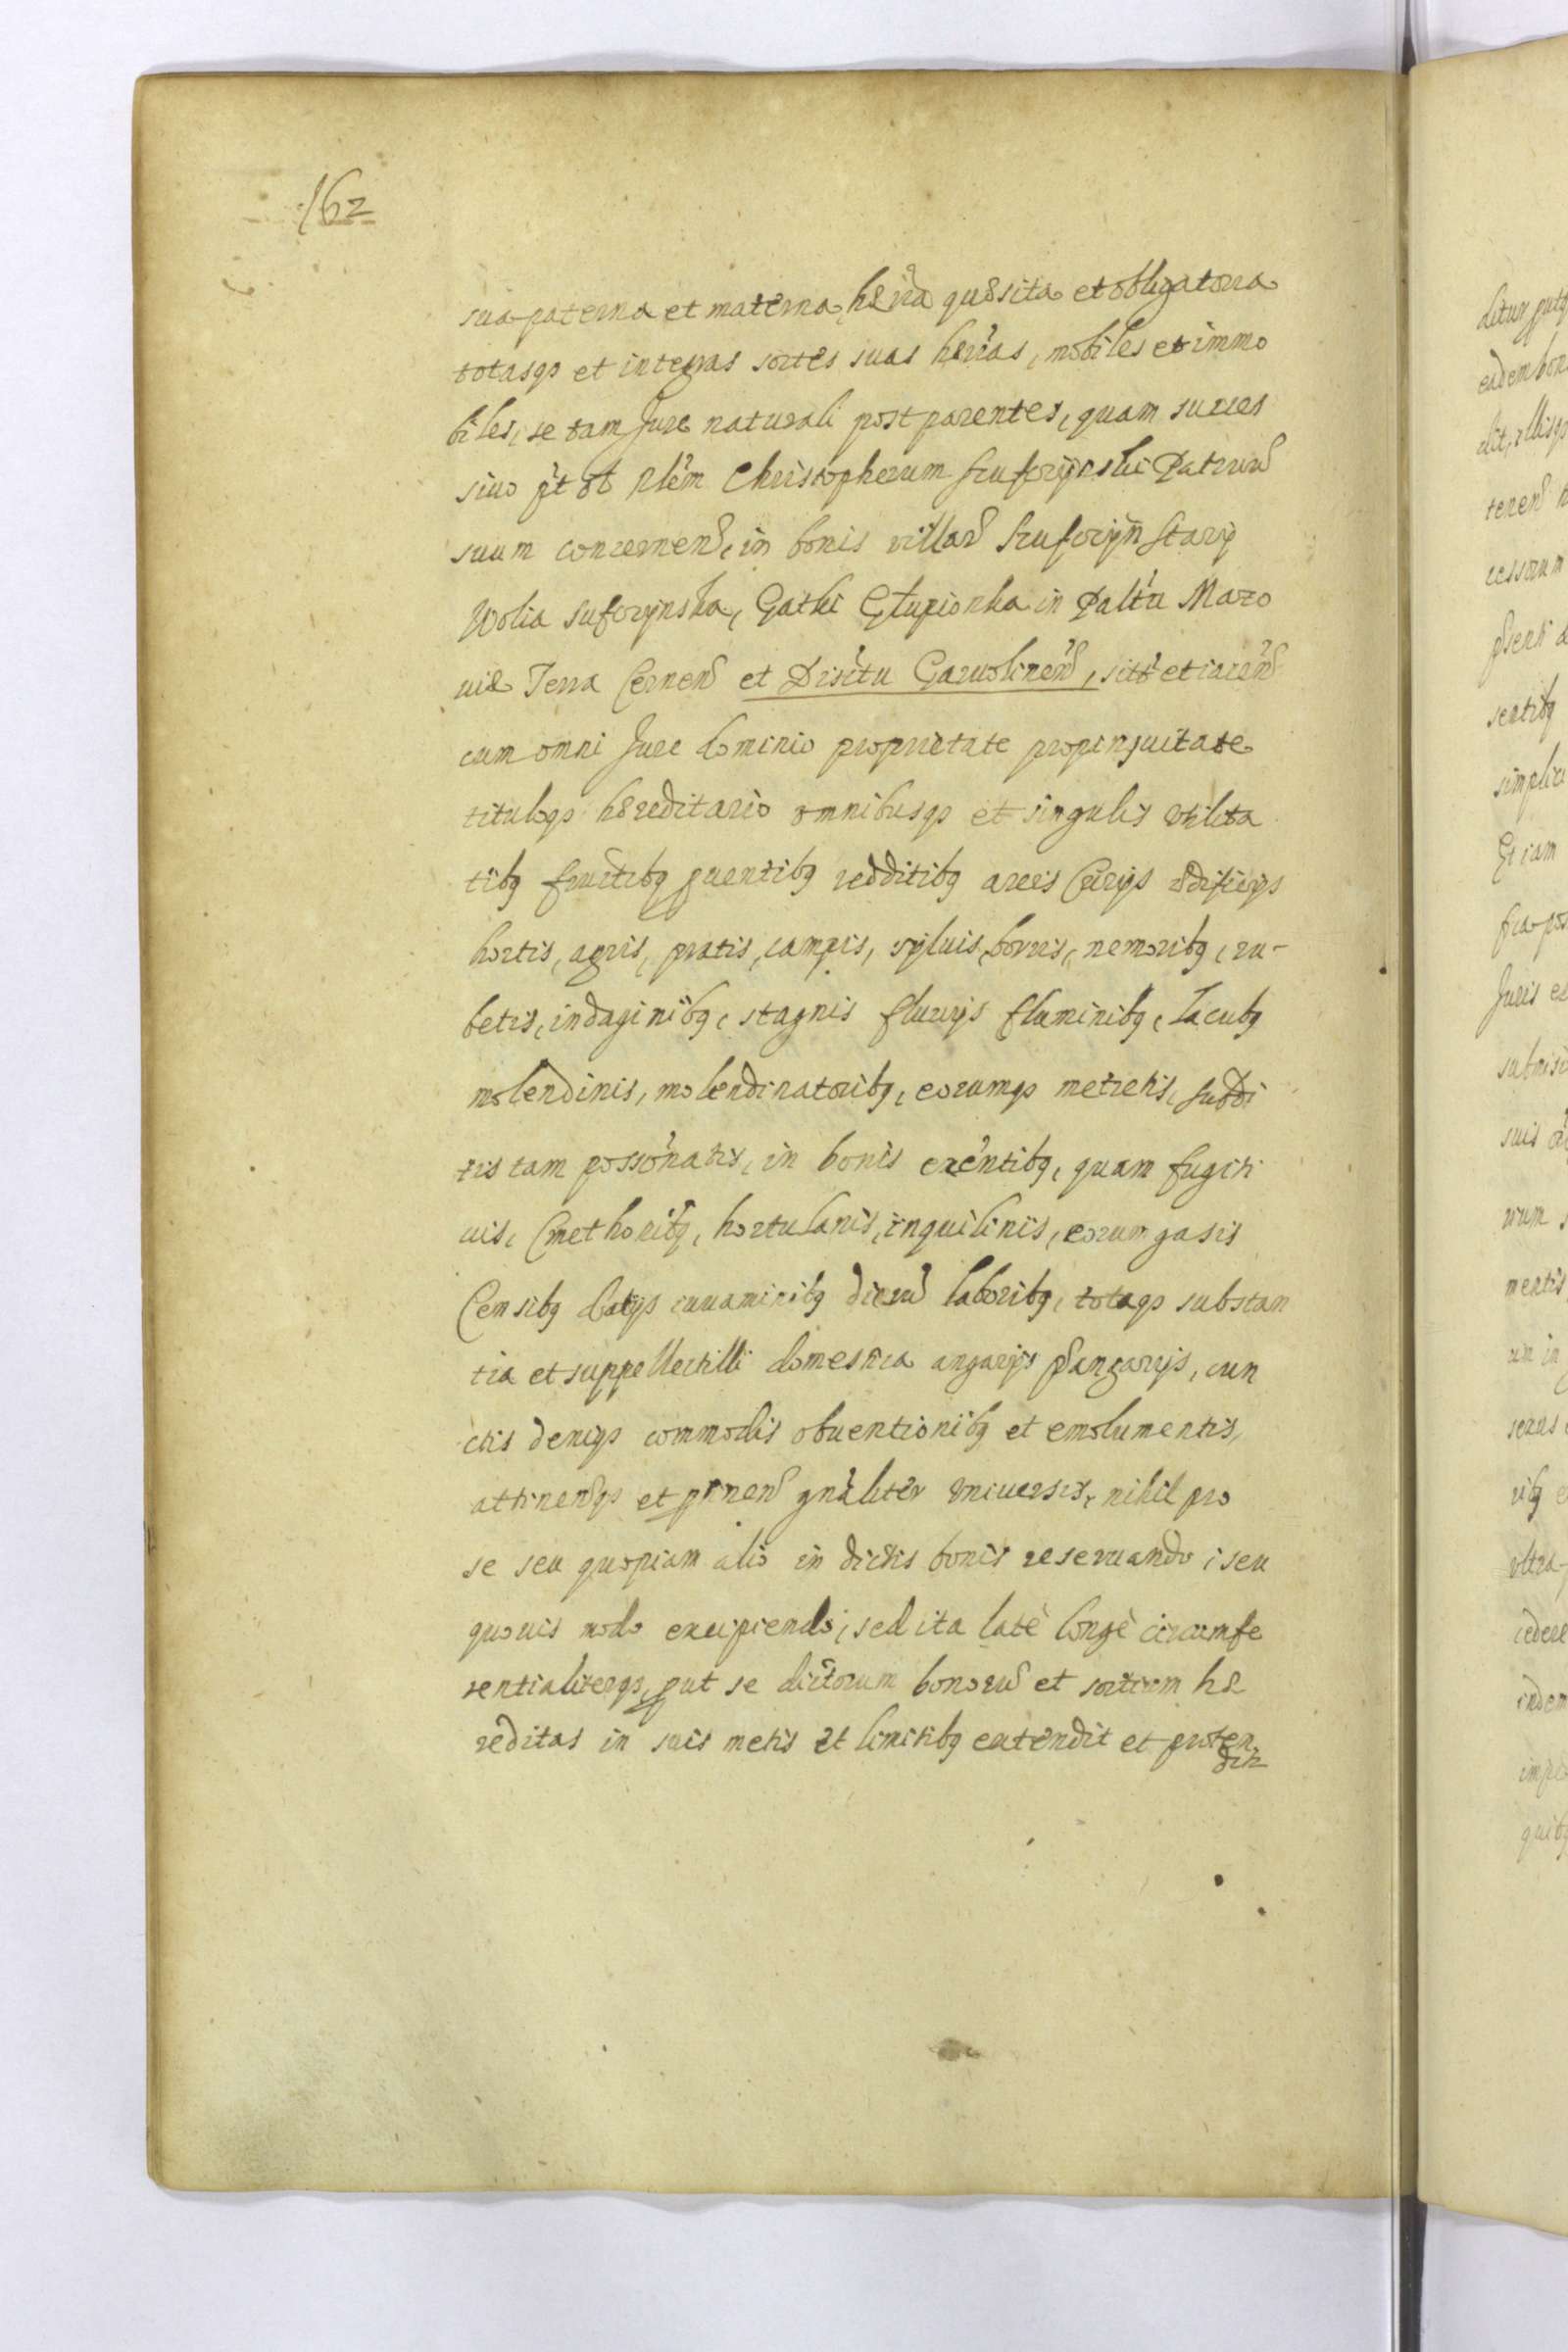 162
sua paterna et materna, hæria quæsita et obligatoria
totasqs et integras sortes suas herias, mobiles et immo
biles, se tam Jure naturali post parentes, quam succes
siuo pt ol Rlem Christopherum Szuforynski Patruu
suum concernen, in bonis villar Szuforyn Stary
Wolia Suforynska, Gatki Głupionka in Paltu Mazo
uiæ Terra Cernen et Disitu Garuolinen, sito et iacen
cum omni Jure dominio proprietate propinquitate
tituloqs hæreditario omnibusqs et singulis vtilita
tibq fructibq puentibq redditibq areis Curijs ædificijs
hortis, agris, pratis, campis, syluis, borris, nemoribq, ru-
betis, indaginibq, stagnis fluuijs fluminibq, Lacubq
molendinis, molendinatoribq, eorumqs metretis, subdi
tis tam possonatis, in bonis exentibq, quam fugiti
uis, Cmethonibq, hortulanis, inquilinis, eorumq asis
Censibq datijs iuuaminibq dieru laboribq, totaqs substan
tia et suppellectilli domestica angarijs pangarijs, cun
ctis deniqs commodis obuentionibq et emolumentis,
attinenqs et ptinen gnaliter vniuersis, nihil pro
se seu quopiam alio in dictis bonis reseruando, seu
quouis modo excipiendo, sed ita latè longè circumfe
rentialiterqs, put se dictorum bonoru et sortium hæ
reditas in suis metis et limitibq extendit et proten
dit